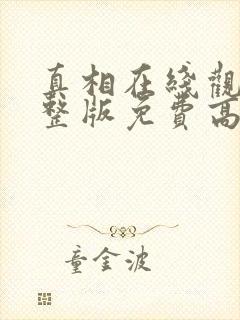 真相在綫觀
整版免費高
童金波